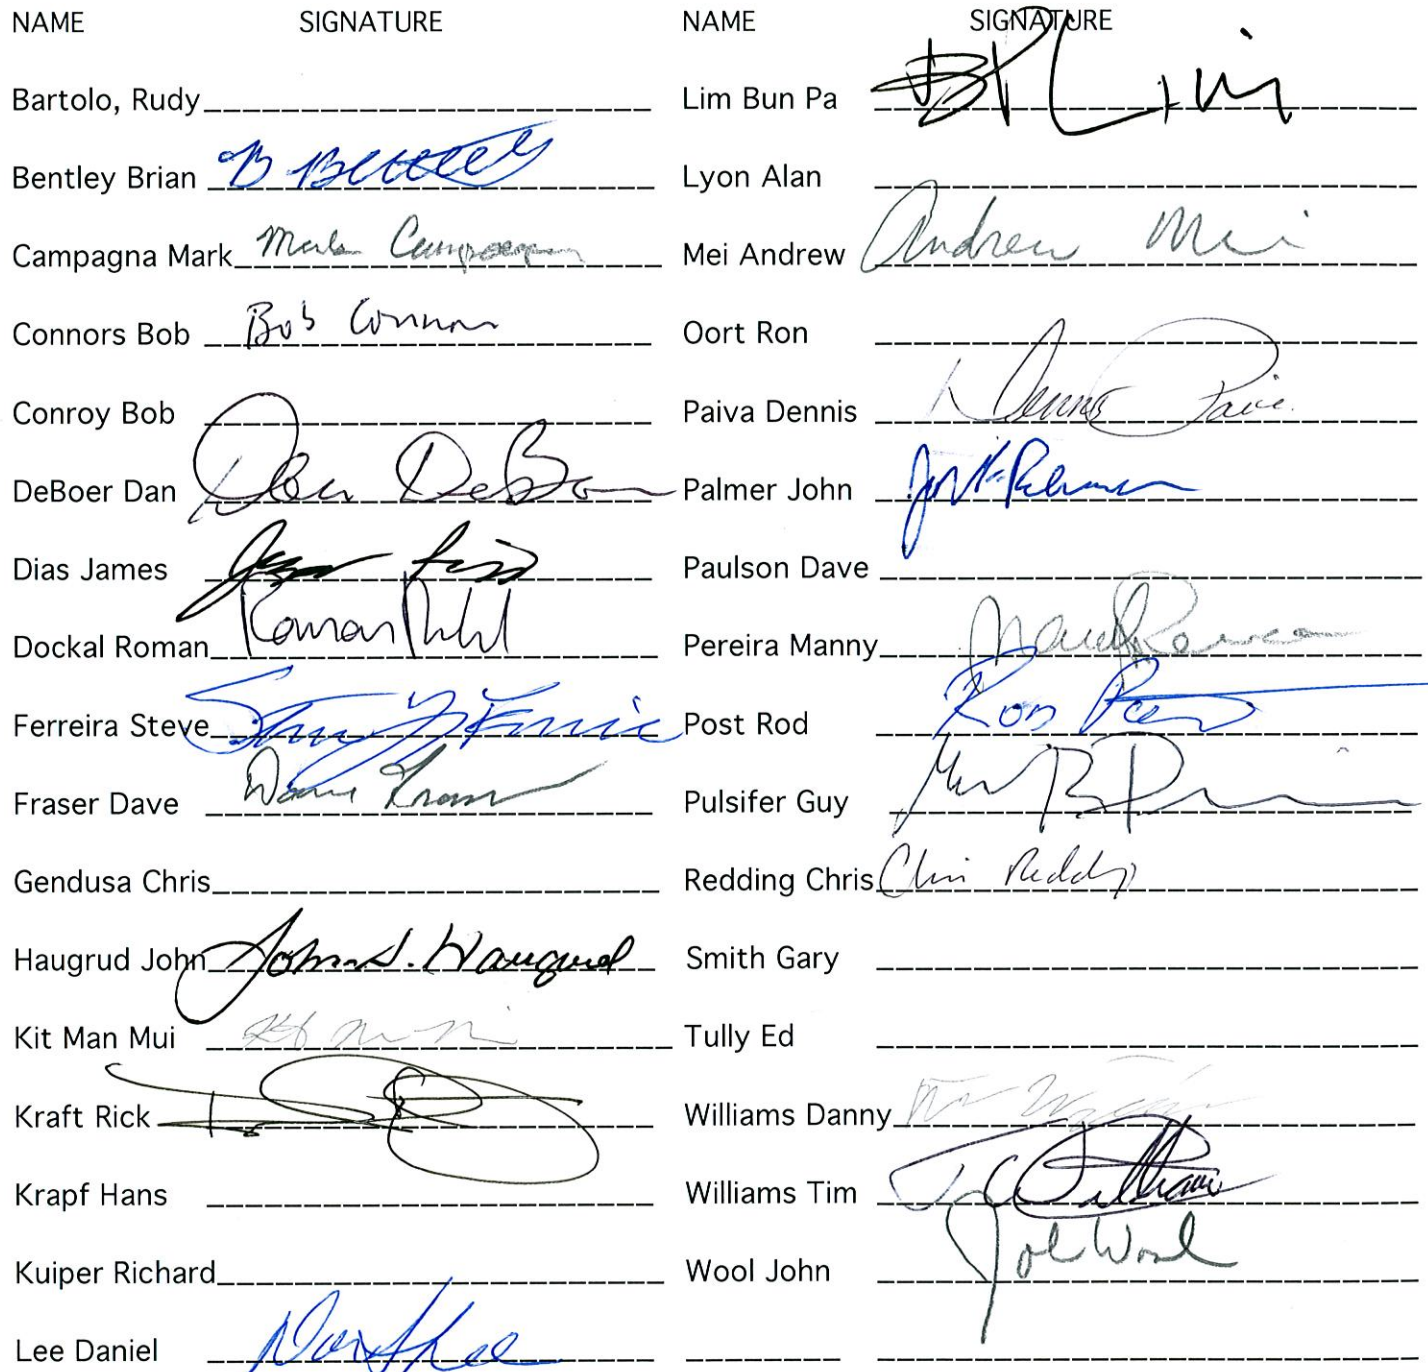 NAME SIGNATURE NAME SIGNATURE
Bartolo, Rudy
Bentley Brian B Bentley
Campagna Mark Mark Campagna
Connors Bob Bob Connors
Conroy Bob
DeBoer Dan Dan DeBoer
Dias James
Dockal Roman Roman
Ferreira Steve
Fraser Dave
Gendusa Chris
Haugrud John John S. Haugrud
Kit Man Mui
Kraft Rick
Krapf Hans
Kuiper Richard
Lee Daniel Lee
Lim Bun Pa BP Lim
Lyon Alan
Mei Andrew Andrew Mei
Oort Ron
Paiva Dennis Dennis Paiva
Palmer John
Paulson Dave
Pereira Manny
Post Rod
Pulsifer Guy
Redding Chris Chris Redding
Smith Gary
Tully Ed
Williams Danny
Williams Tim Williams
Wool John John Wool